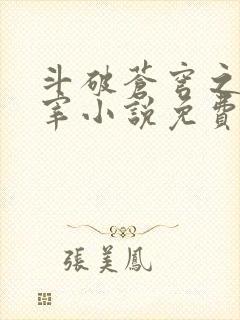 斗破蒼穹之
宰小說免費
張美鳳